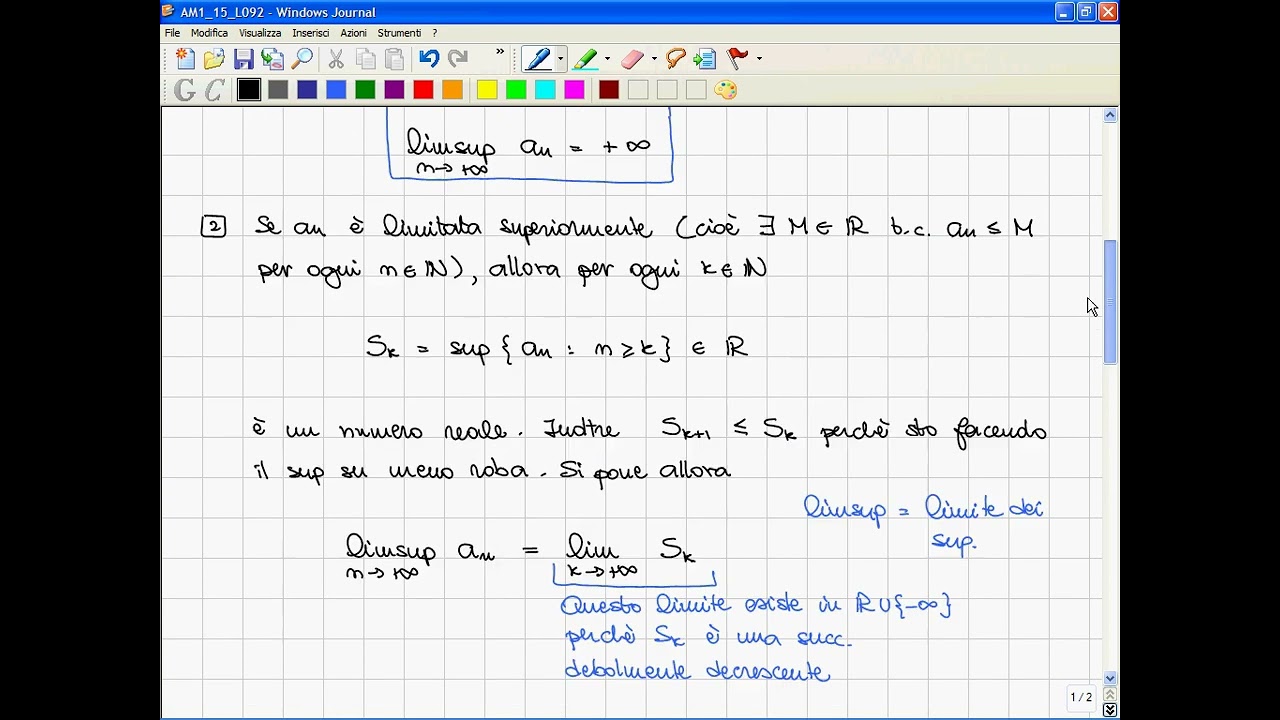 AM1_15_L092 - Windows Journal
File Modifica Visualizza Inserisci Azioni Strumenti ?
limsup an = +∞
n→+∞
2 Se an è limitata superiormente (cioè ∃ M ∈ ℝ t.c. an ≤ M
per ogni n ∈ ℕ), allora per ogni k ∈ ℕ
Sk = sup { an : n ≥ k } ∈ ℝ
è un numero reale. Inoltre Sk+1 ≤ Sk perchè sto facendo
il sup su meno roba. Si pone allora
limsup = limite dei
sup.
limsup an = lim Sk
n→+∞ k→+∞
Questo limite esiste in ℝ∪{-∞}
perchè Sk è una succ.
debolmente decrescente
1 / 2